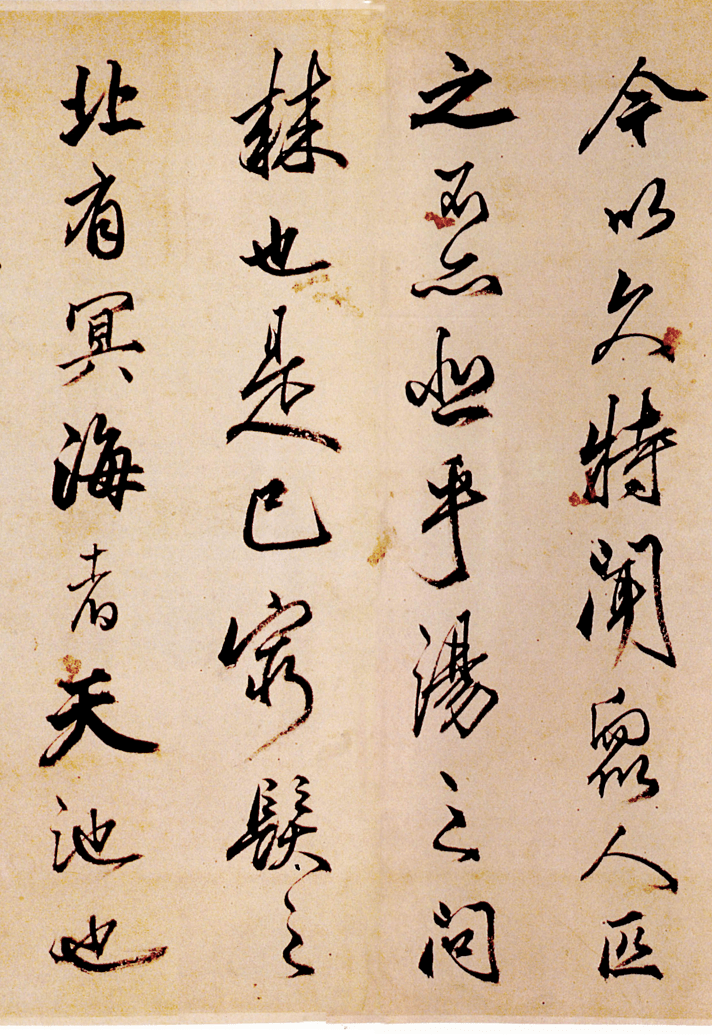 今以久特聞衆人匹
之不亦悲乎湯之問
棘也是已窮髮之
北有冥海者天池也